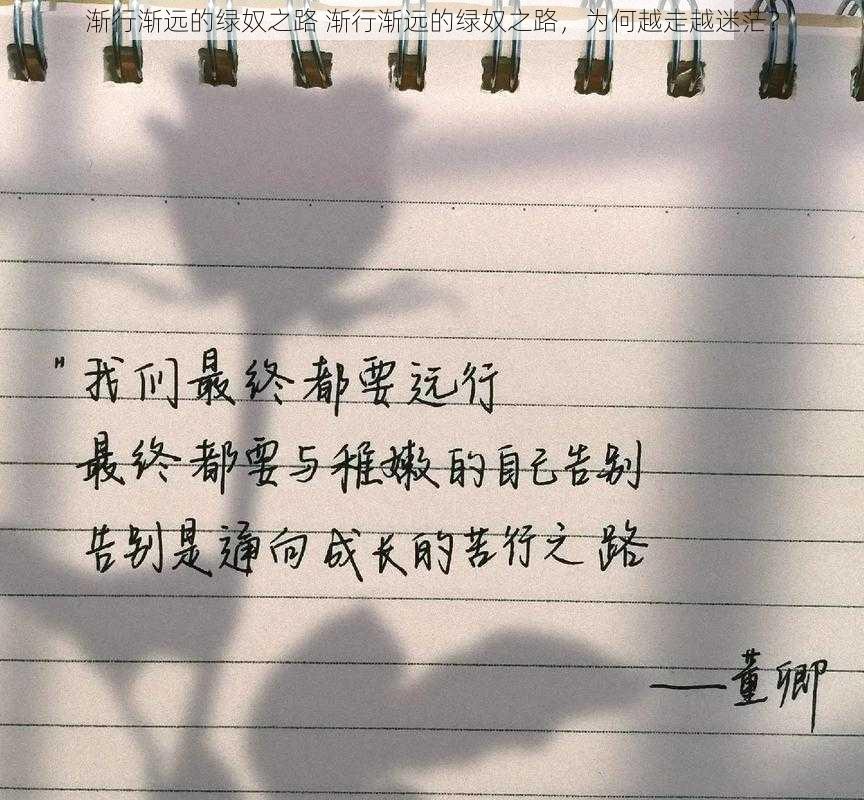 渐行渐远的绿奴之路 渐行渐远的绿奴之路，为何越走越迷茫？
"我们最终都要远行
最终都要与稚嫩的自己告别
告别是通向成长的苦行之路
——董卿